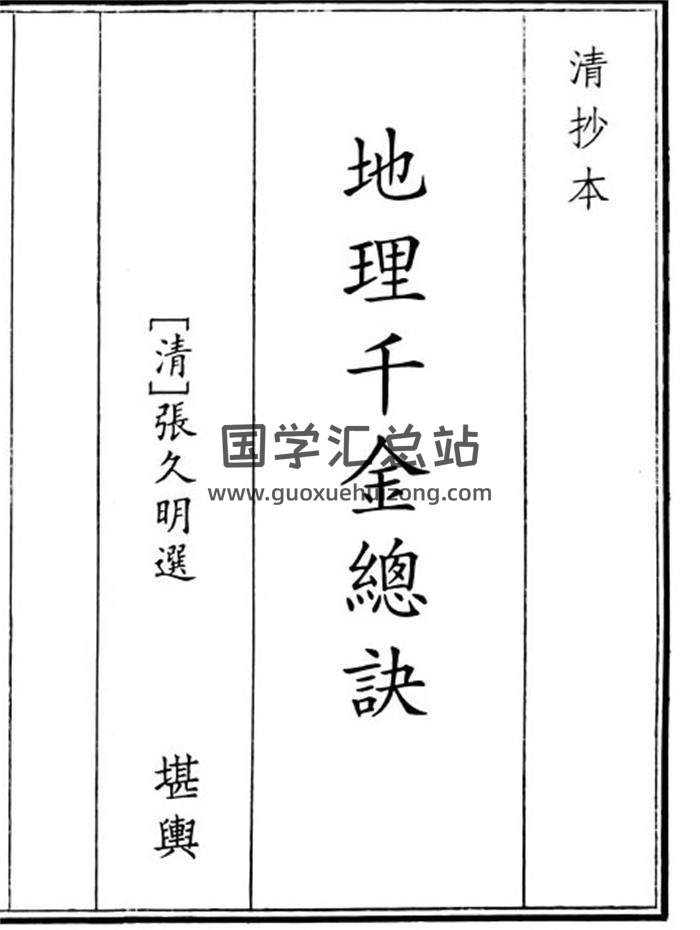 清抄本
地理千金總訣
[清]張久明選
堪輿
国学汇总站
www.guoxuehuizong.com